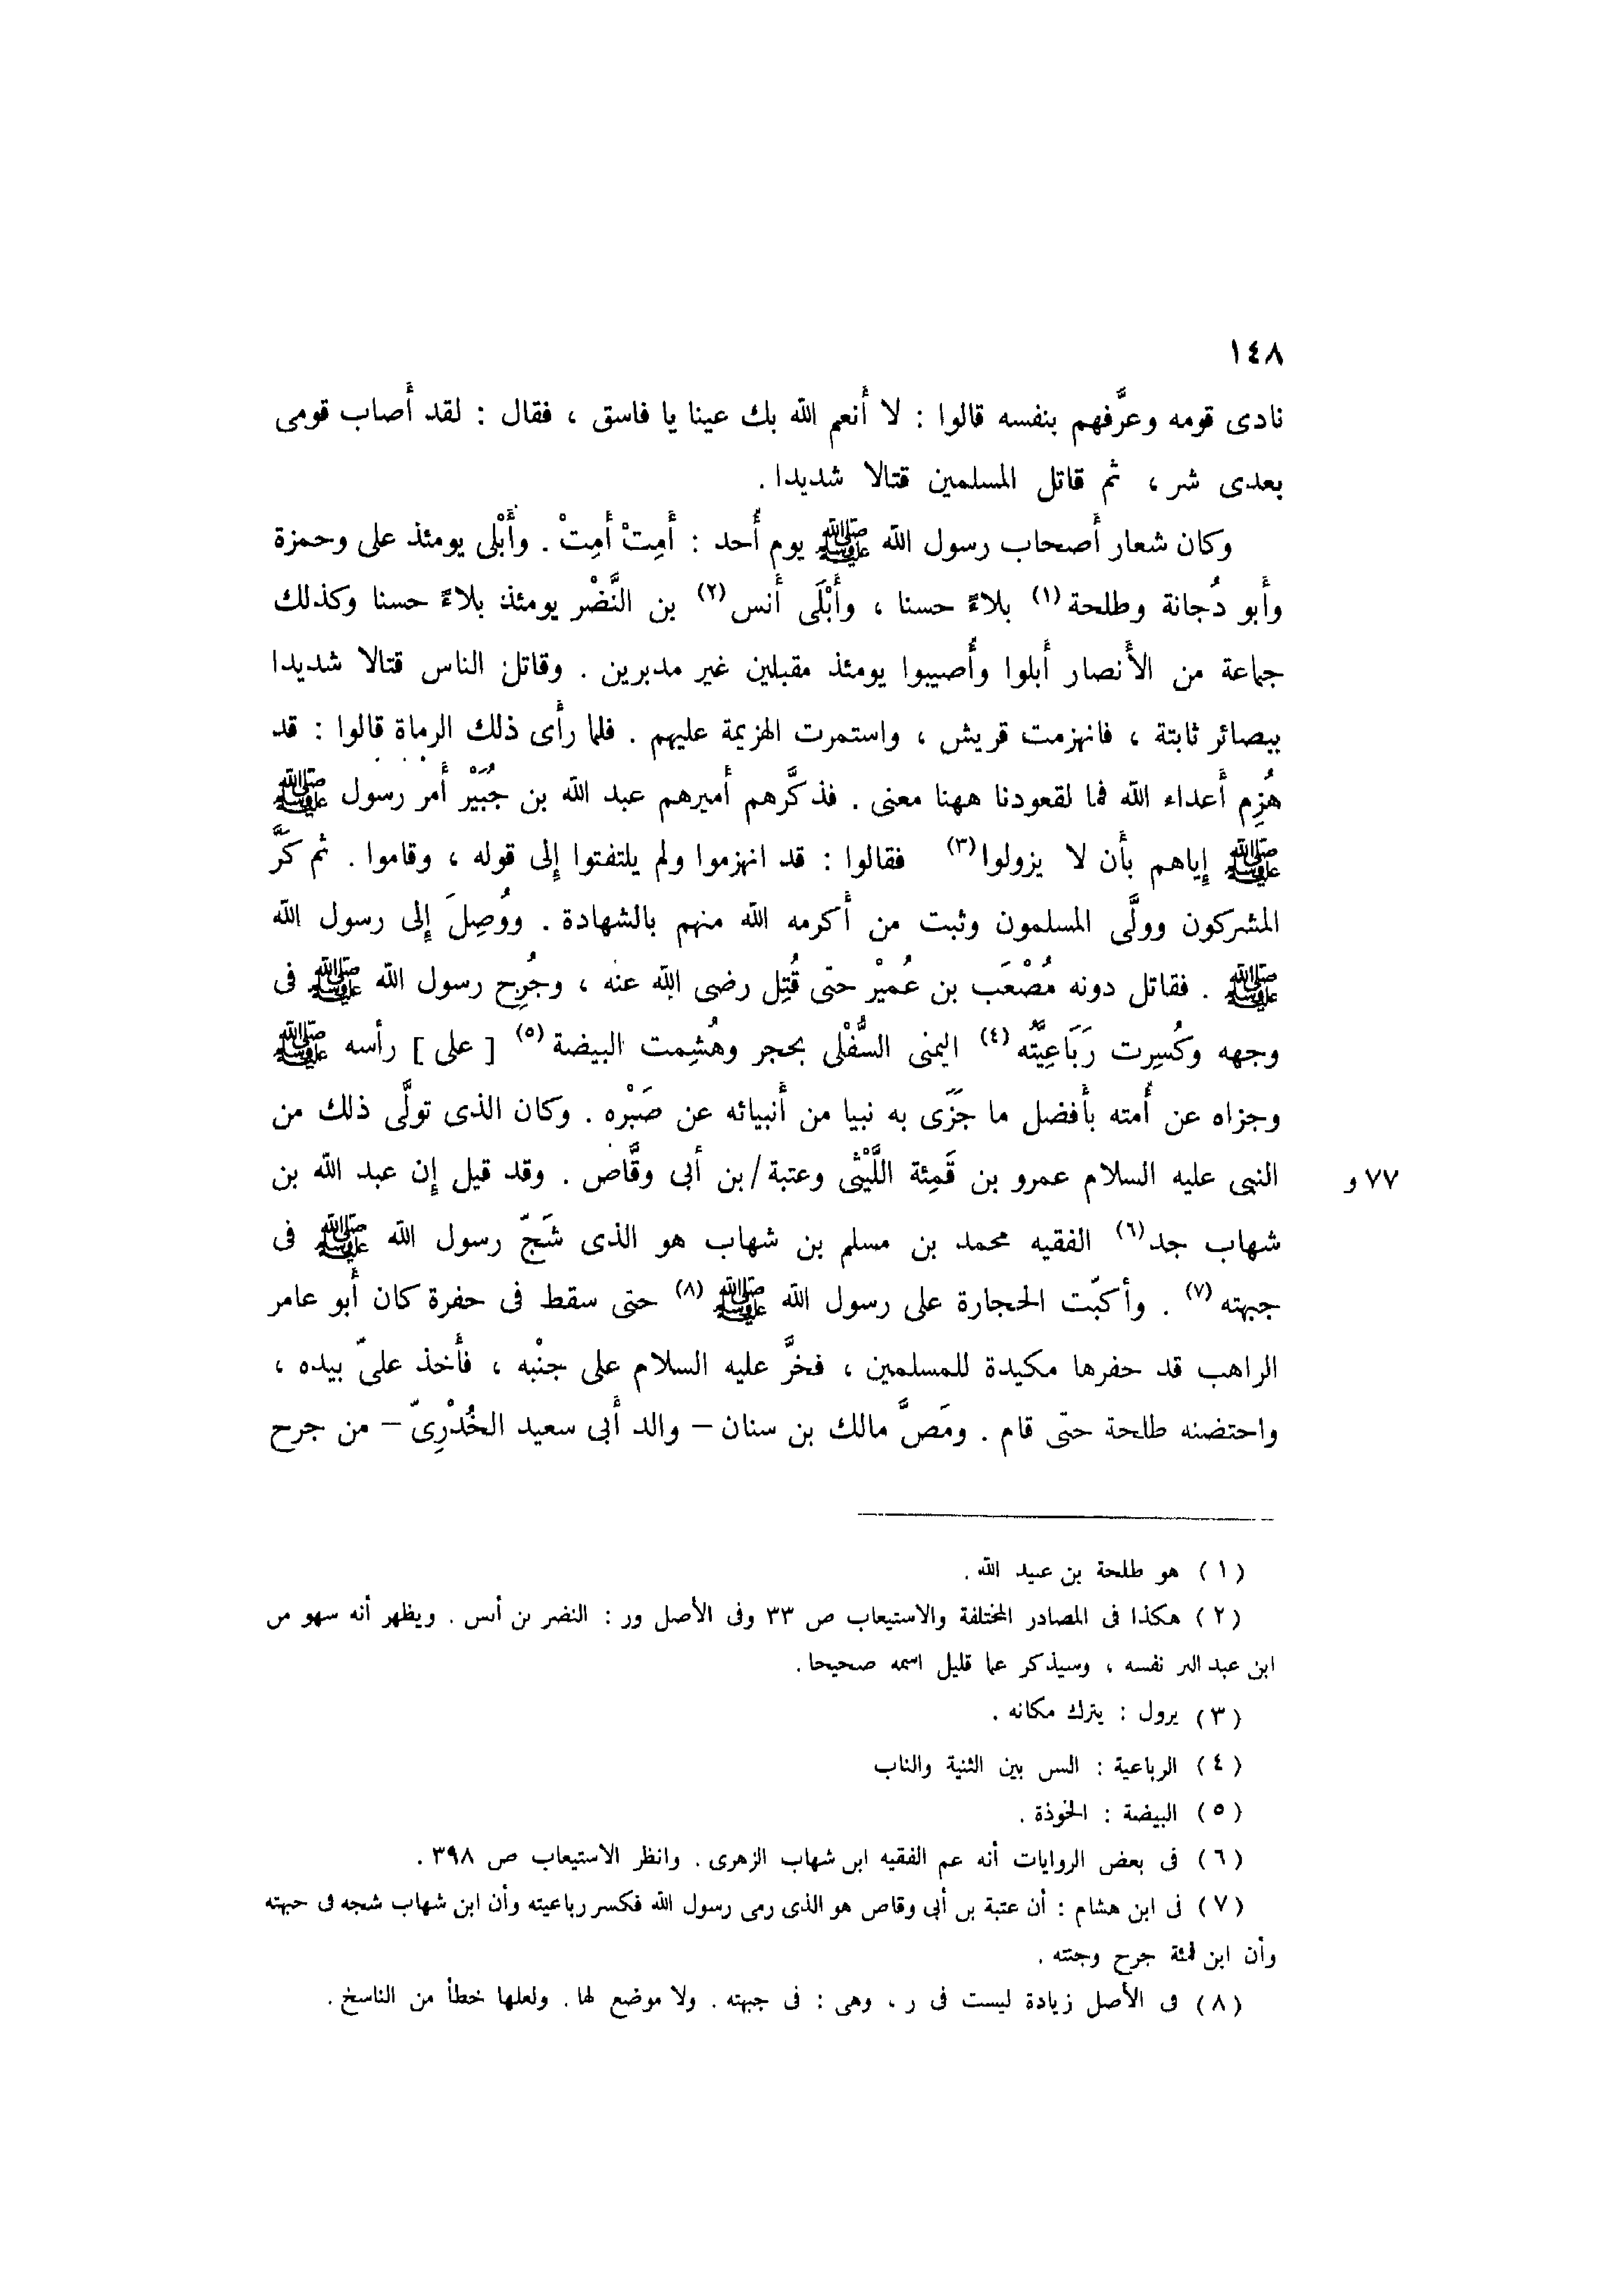 ١٤٨
نادى قومه وعرَّفهم بنفسه قالوا : لا أَنعم الله بك عينا يا فاسق ، فقال : لقد أَصاب قومى
بعدى شر ، ثم قاتل المسلمين قتالا شديدا .
وكان شعار أَصحاب رسول الله ﷺ يوم أُحد : أَمِتْ أَمِتْ . وأَبْلى يومئذ على وحمزة
وأَبو دُجانة وطلحة (١) بلاءً حسنا ، وأَبْلَى أَنس (٢) بن النَّضْر يومئذ بلاءً حسنا وكذلك
جماعة من الأَنصار أَبلوا وأُصيبوا يومئذ مقبلين غير مدبرين . وقاتل الناس قتالا شديدا
ببصائر ثابتة ، فانهزمت قريش ، واستمرت الهزيمة عليهم . فلما رأَى ذلك الرماة قالوا : قد
هُزِم أَعداء الله فما لقعودنا ههنا معنى . فذكَّرهم أَميرهم عبد الله بن جُبَيْر أَمر رسول ﷺ
ﷺ إِياهم بأَن لا يزولوا (٣) فقالوا : قد انهزموا ولم يلتفتوا إِلى قوله ، وقاموا . ثم كَرَّ
المشركون وولَّى المسلمون وثبت من أَكرمه الله منهم بالشهادة . ووُصِلَ إِلى رسول الله
ﷺ . فقاتل دونه مُصْعَب بن عُميْر حتّى قُتِل رضى الله عنه ، وجُرِح رسول الله ﷺ فى
وجهه وكُسِرت رَبَاعِيَّتُه (٤) اليمنى السُّفْلى بحجر وهُشِمت البيضة (٥) [ على ] رأسه ﷺ
وجزاه عن أُمته بأَفضل ما جَزَى به نبيا من أَنبيائه عن صَبْره . وكان الذى تولَّى ذلك من
النبى عليه السلام عمرو بن قَمِئة اللَّيْثى وعتبة / بن أبى وقَّاص . وقد قيل إِن عبد الله بن ٧٧ و
شهاب جد (٦) الفقيه محمد بن مسلم بن شهاب هو الذى شَجّ رسول الله ﷺ فى
جبهته (٧) . وأكبّت الحجارة على رسول الله ﷺ (٨) حتى سقط فى حفرة كان أَبو عامر
الراهب قد حفرها مكيدة للمسلمين ، فخرَّ عليه السلام على جنْبه ، فأَخذ علىّ بيده ،
واحتضنه طلحة حتّى قام . ومَصَّ مالك بن سنان – والد أَبى سعيد الخُدْرِىّ – من جرح
(١) هو طلحة بن عبيد الله .
(٢) هكذا فى المصادر المختلفة والاستيعاب ص ٣٣ وفى الأصل ور : النضر بن أنس . ويظهر أنه سهو من
ابن عبد البر نفسه ، وسيذكر عما قليل اسمه صحيحا .
(٣) يزول : يترك مكانه .
(٤) الرباعية : السن بين الثنية والناب
(٥) البيضة : الخوذة .
(٦) فى بعض الروايات أنه عم الفقيه ابن شهاب الزهرى . وانظر الاستيعاب ص ٣٩٨ .
(٧) فى ابن هشام : أن عتبة بن أبى وقاص هو الذى رمى رسول الله فكسر رباعيته وأن ابن شهاب شجه فى جبهته
وأن ابن قمئة جرح وجنته .
(٨) فى الأصل زيادة ليست فى ر ، وهى : فى جبهته . ولا موضع لها . ولعلها خطأ من الناسخ .